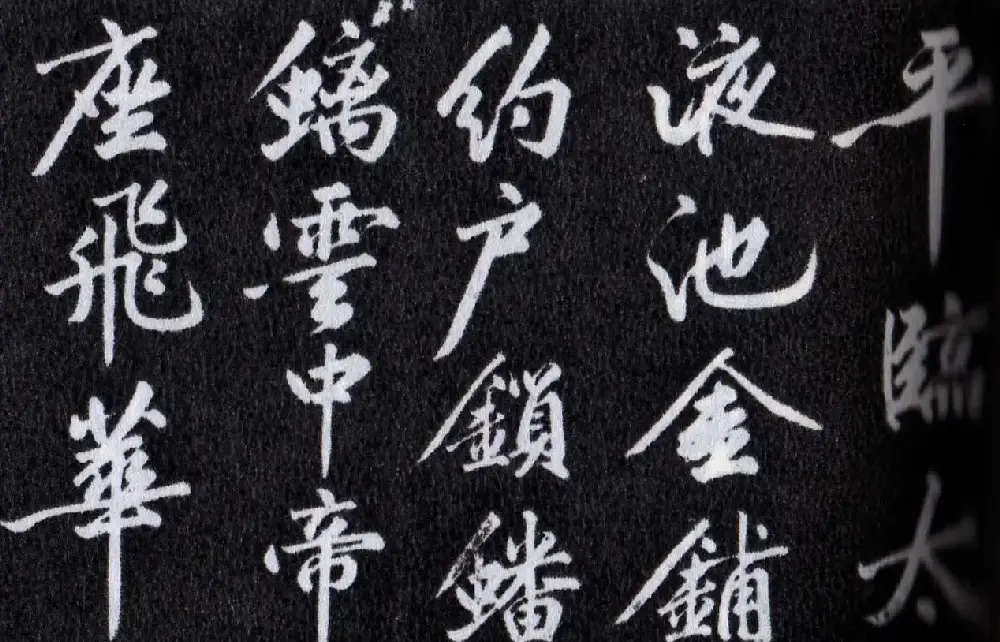 平臨太
液池金鋪
約户鎖蟠
螭雲中帝
座飛華